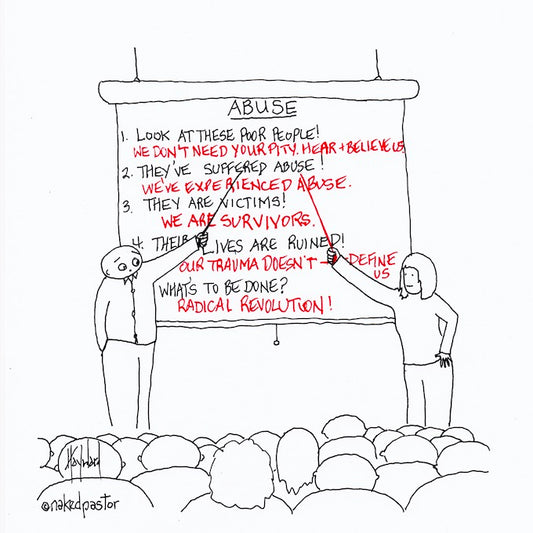 ABUSE
1. LOOK AT THESE POOR PEOPLE!
WE DON'T NEED YOUR PITY. HEAR + BELIEVE US
2. THEY'VE SUFFERED ABUSE!
WE'VE EXPERIENCED ABUSE.
3. THEY ARE VICTIMS!
WE ARE SURVIVORS.
4. THEIR LIVES ARE RUINED!
OUR TRAUMA DOESN'T DEFINE
US
WHAT'S TO BE DONE?
RADICAL REVOLUTION!
Hayward
©nakedpastor